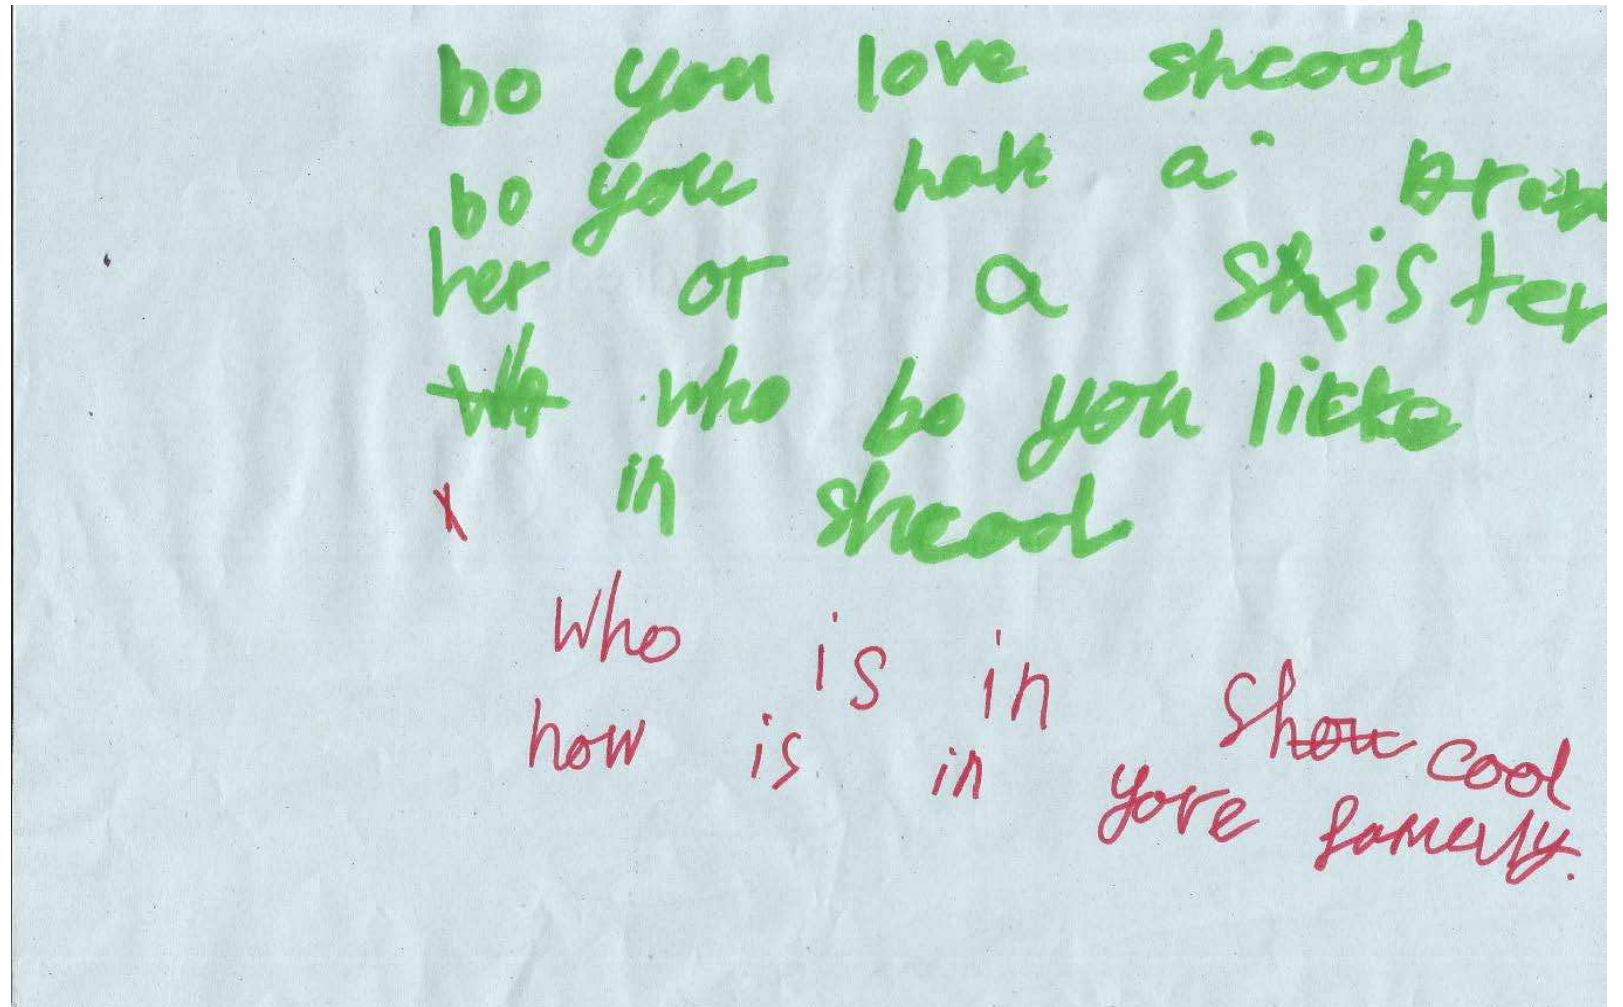 bo you love shcool
bo you hate a
her or a shister
who bo you like
in shcool
who is in shcool
how is in yore famelly.